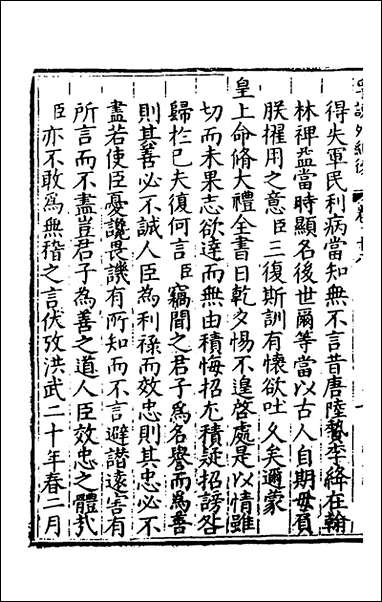 得失軍民利病當知無不言昔唐陸贄李絳在翰
林裨益當時顯名後世爾等當以古人自期毋負
朕擢用之意臣三復斯訓有懷欲吐久矣邇蒙
皇上命脩大禮全書日乾夕惕不遑啓處是以情雖
切而未果志欲達而無由積悔招尤積疑招謗咎
歸於已夫復何言臣竊聞之君子為名譽而為善
則其善必不誠人臣為利祿而效忠則其忠必不
盡若使臣憂讒畏譏有所知而不言避譖遠害有
所言而不盡豈君子為善之道人臣效忠之體㢤
臣亦不敢為無稽之言伏攷洪武二十年春二月